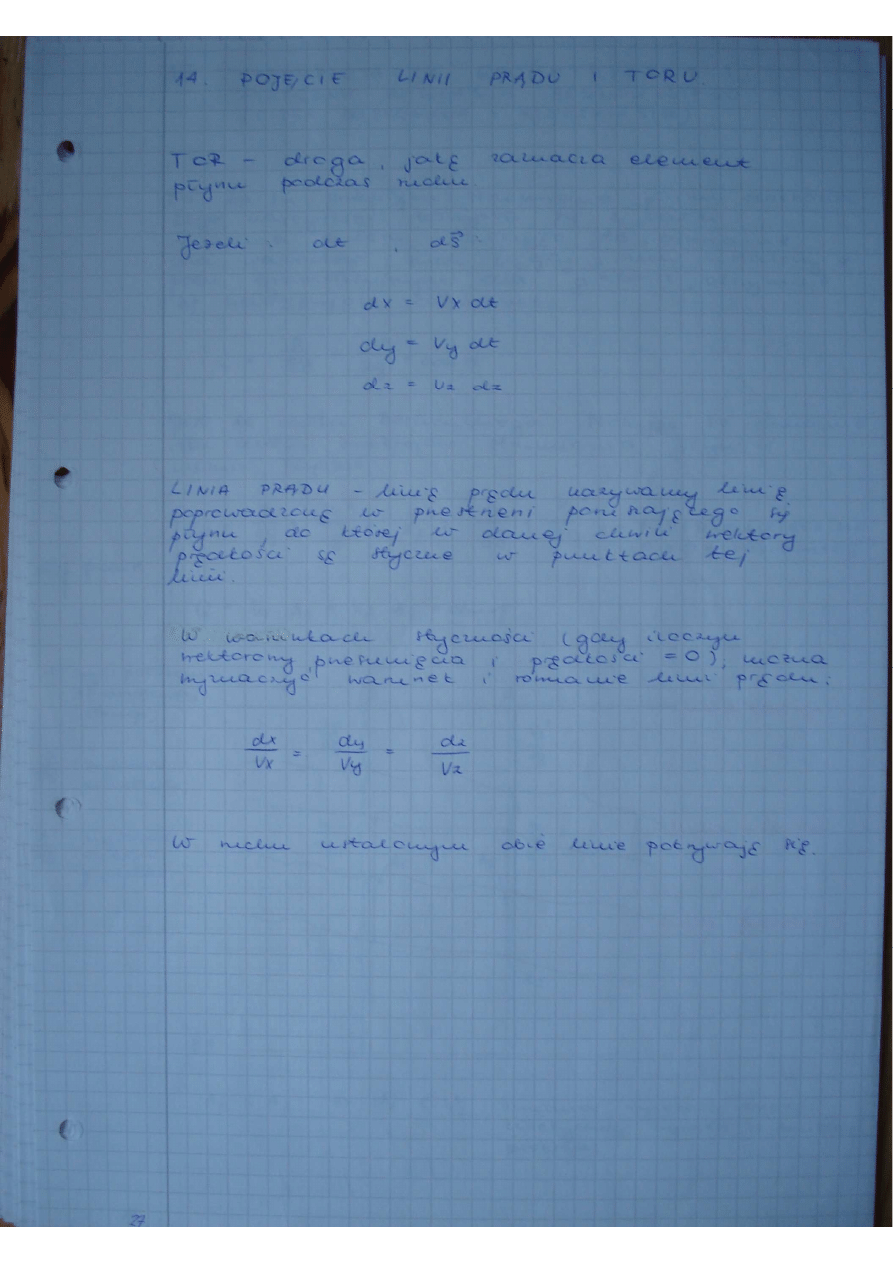 14. POJĘCIE LINII PRĄDU I TORU.
TOR - droga, jaką zaznacza element
płynu podczas ruchu.
Jeżeli: dt , ds⃗:
dx = Vx dt
dy = Vy dt
dz = Vz dz
LINIA PRĄDU - linią prądu nazywamy linię
poprowadzoną w przestrzeni poruszającego się
płynu, do której w danej chwili wektory
prędkości są styczne w punktach tej
linii.
W warunkach styczności (gdy iloczyn
wektorowy przesunięcia i prędkości = 0), można
wyznaczyć warunek i równanie linii prądu:
dx/Vx = dy/Vy = dz/Vz
W ruchu ustalonym obie linie pokrywają się.
27